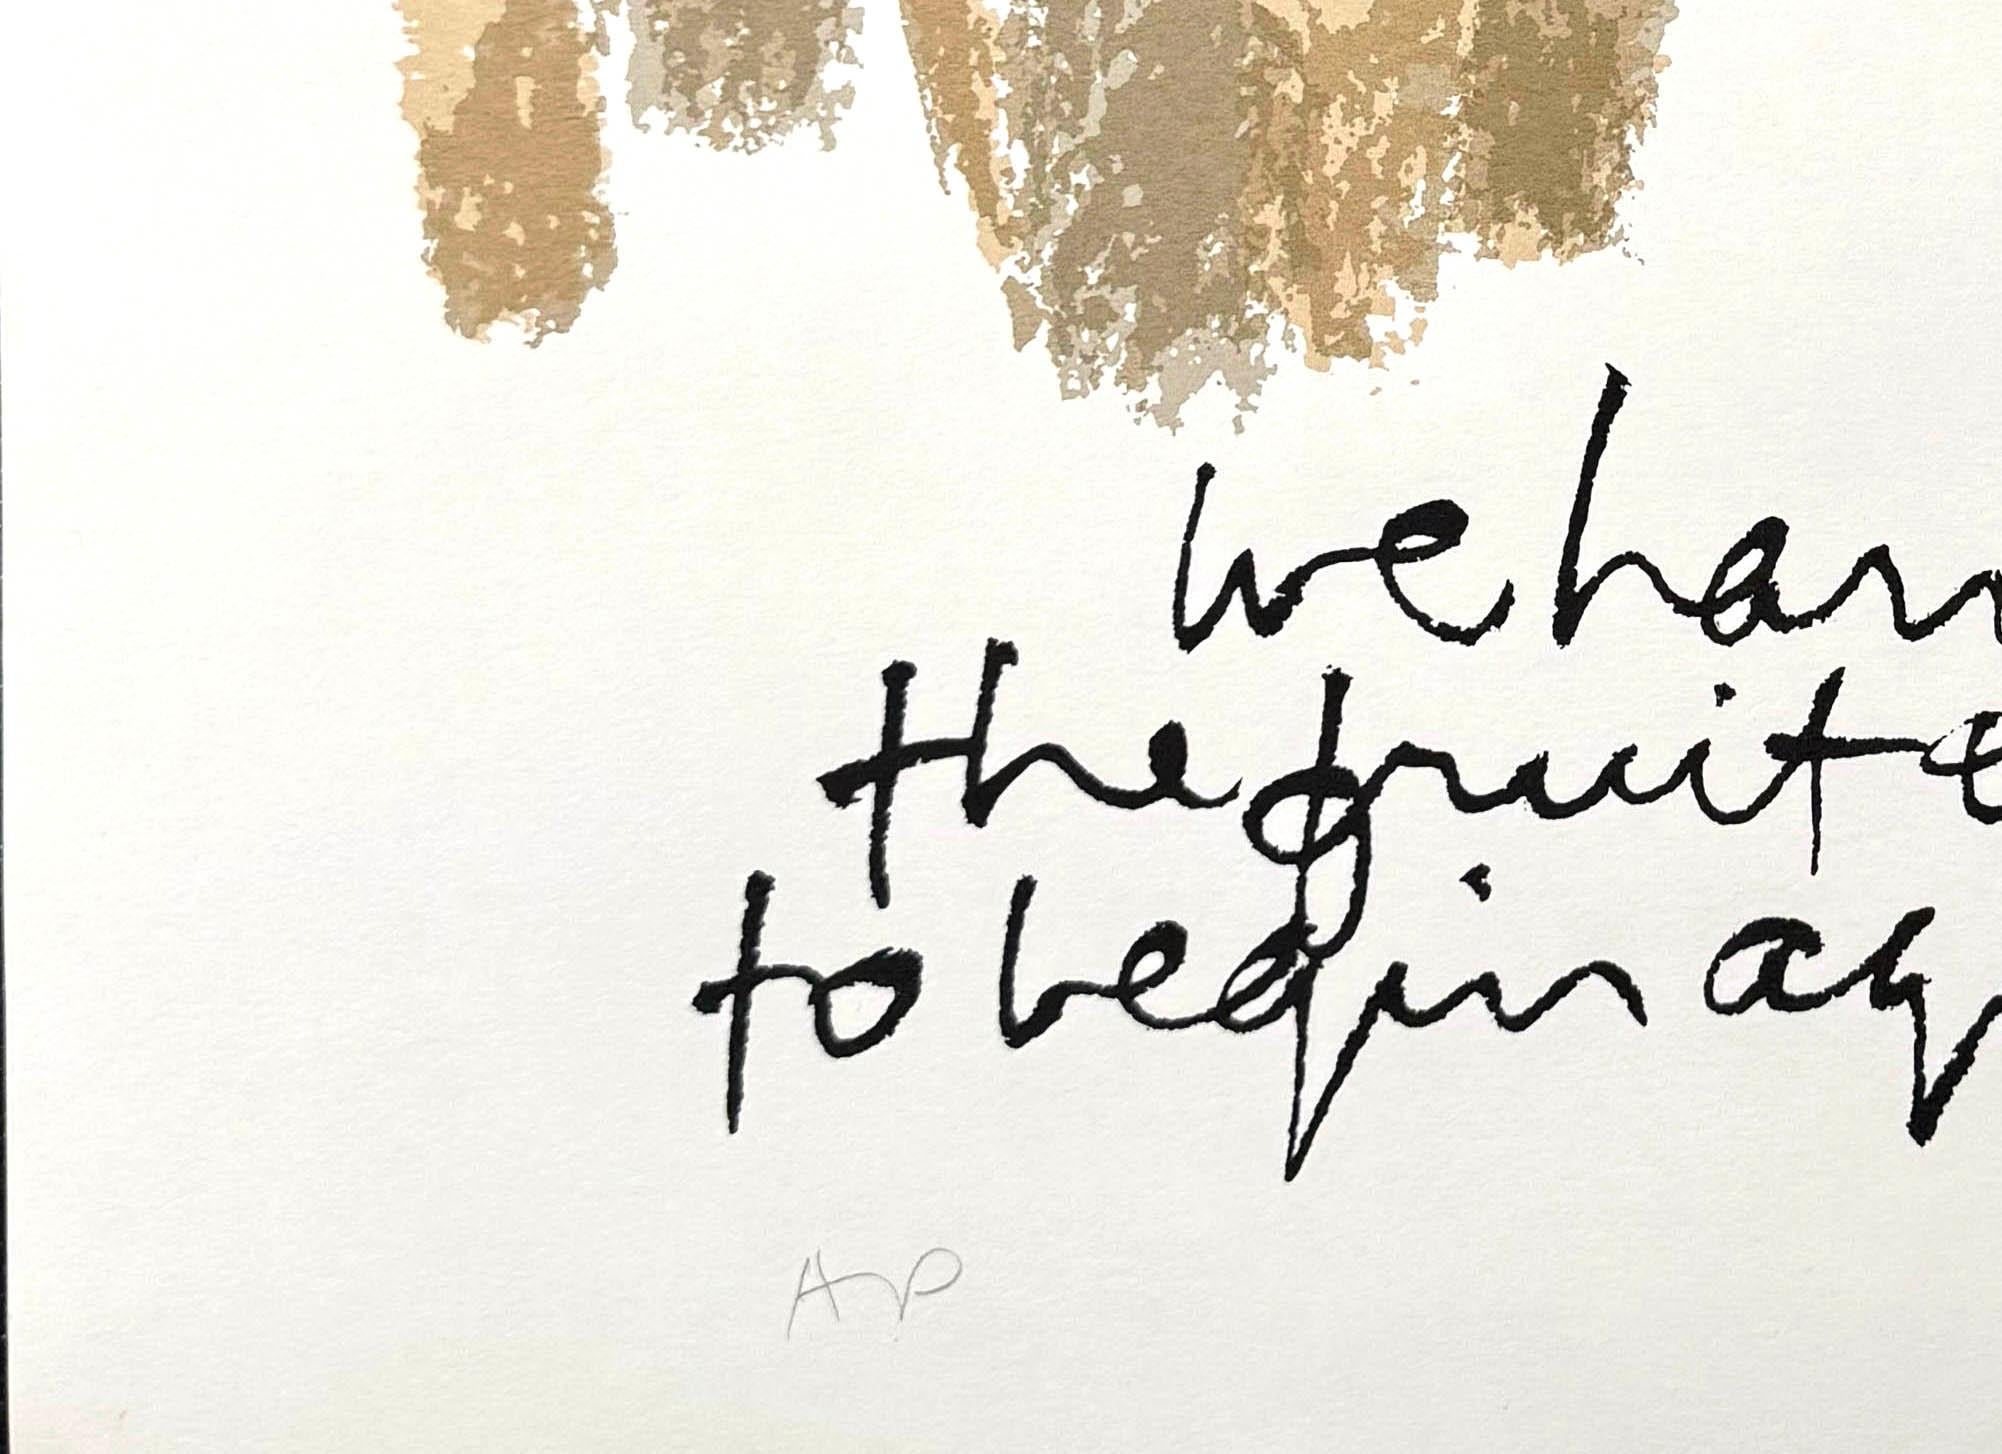 we harv
the fruit e
to begin ag
AP